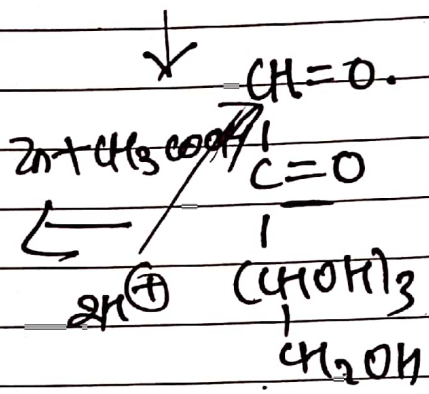 CH=O.
Zn+CH3COOH
C=O
2H⊕
(CHOH)3
CH2OH